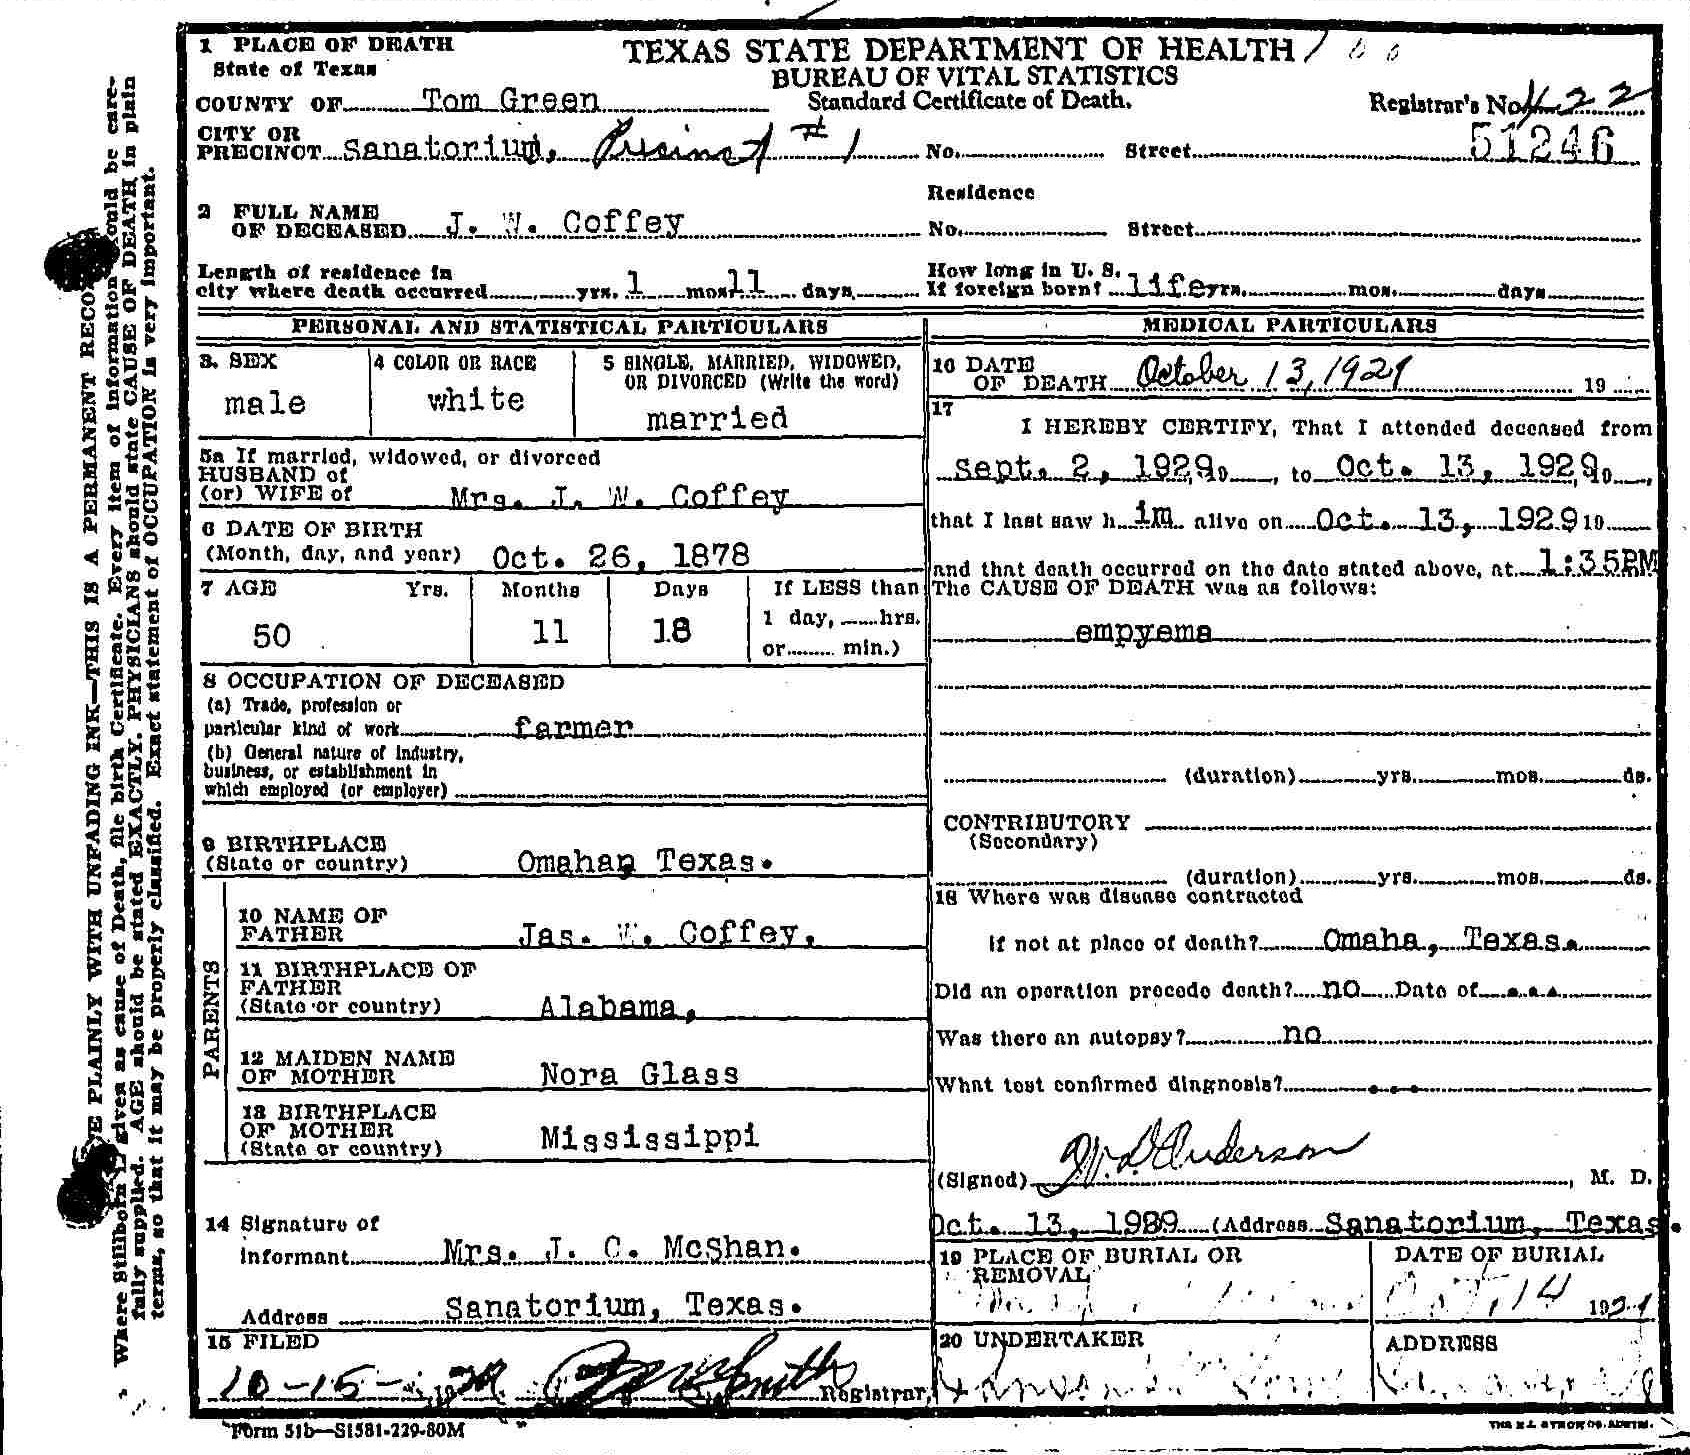 1 PLACE OF DEATH
State of Texas
TEXAS STATE DEPARTMENT OF HEALTH
BUREAU OF VITAL STATISTICS
Standard Certificate of Death.
COUNTY OF Tom Green
Registrar's No. 422
51246
CITY OR
PRECINCT Sanatorium, Precinct #1 No. Street
2 FULL NAME
OF DECEASED J. W. Coffey
Residence
No. Street
Length of residence in
city where death occurred yrs. 1 mos. 11 days,
How long in U. S.
If foreign born? life yrs. mos. days
PERSONAL AND STATISTICAL PARTICULARS
3. SEX
male
4 COLOR OR RACE
white
5 SINGLE, MARRIED, WIDOWED,
OR DIVORCED (Write the word)
married
5a If married, widowed, or divorced
HUSBAND of
(or) WIFE of Mrs. J. W. Coffey
6 DATE OF BIRTH
(Month, day, and year) Oct. 26, 1878
7 AGE Yrs. Months Days If LESS than
1 day, hrs.
50 11 18
or min.)
8 OCCUPATION OF DECEASED
(a) Trade, profession or
particular kind of work farmer
(b) General nature of Industry,
business, or establishment in
which employed (or employer)
9 BIRTHPLACE
(State or country) Omahan Texas.
PARENTS
10 NAME OF
FATHER Jas. W. Coffey.
11 BIRTHPLACE OF
FATHER
(State or country) Alabama,
12 MAIDEN NAME
OF MOTHER Nora Glass
13 BIRTHPLACE
OF MOTHER
(State or country) Mississippi
14 Signature of
Informant Mrs. J. C. McShan.
Address Sanatorium, Texas.
15 FILED
10-15- 1929 Smith Registrar.
MEDICAL PARTICULARS
16 DATE
OF DEATH October 13, 1929 19
17
I HEREBY CERTIFY, That I attended deceased from
Sept. 2, 1929, to Oct. 13, 1929,
that I last saw him alive on Oct. 13, 1929 19
and that death occurred on the date stated above, at 1:35PM
The CAUSE OF DEATH was as follows:
empyema
(duration) yrs. mos. ds.
CONTRIBUTORY
(Secondary)
(duration) yrs. mos. ds.
18 Where was disease contracted
if not at place of death? Omaha, Texas.
Did an operation precede death? no Date of ...
Was there an autopsy? no
What test confirmed diagnosis? ...
(Signed) Anderson, M. D.
Oct. 13, 1929 (Address Sanatorium, Texas.
19 PLACE OF BURIAL OR
REMOVAL
DATE OF BURIAL
Oct. 14 1929
20 UNDERTAKER
ADDRESS
Form 51b—S1581-229-80M
WRITE PLAINLY WITH UNFADING INK—THIS IS A PERMANENT RECORD
Where Stillborn is given as cause of Death, file birth Certificate. Every item of information should be care-
fully supplied. AGE should be stated EXACTLY. PHYSICIANS should state CAUSE OF DEATH in plain
terms, so that it may be properly classified. Exact statement of OCCUPATION is very important.